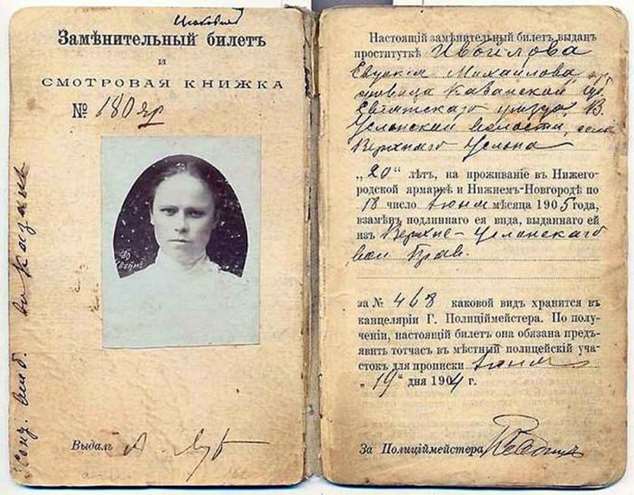 Замѣнительный билетъ
и
СМОТРОВАЯ КНИЖКА
№ 180 яр
Выдалъ
Настоящій замѣнительный билетъ выданъ
проституткѣ Ивойлова
Евдокія Михайлова
Казанской
Свіятскаго уѣзда, В.
Услонской волости, села
Верхняго Услона
„20“ лѣтъ, на проживаніе въ Нижего-
родской ярмаркѣ и Нижнемъ-Новгородѣ по
18 число Іюня мѣсяца 1905 года,
взамѣнъ подлиннаго ея вида, выданнаго ей
изъ Верхне-Услонскаго
вол Прав.
за № 468 каковой видъ хранится въ
канцеляріи Г. Полиціймейстера. По полу-
ченіи, настоящій билетъ она обязана предъ-
явить тотчасъ въ мѣстный полицейскій уча-
стокъ для прописки Іюня
„19“ дня 1904 г.
За Полиціймейстера